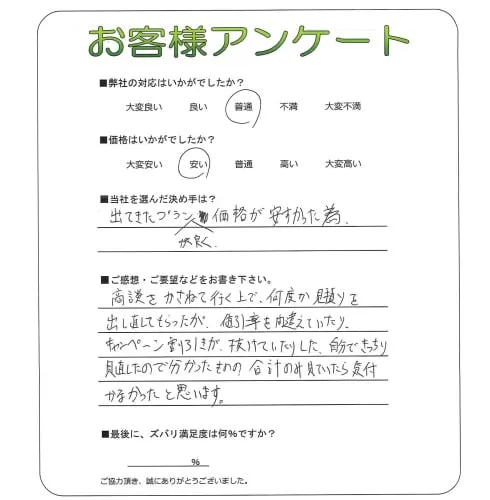 お客様アンケート
■弊社の対応はいかがでしたか?
大変良い 良い 普通 不満 大変不満
■価格はいかがでしたか?
大変安い 安い 普通 高い 大変高い
■当社を選んだ決め手は?
出てきたプラン 価格が安すかった為、
が良く、
■ご感想・ご要望などをお書き下さい。
商談をかさねて行く上で、何度か見積りを
出し直してもらったが、値引率を間違えていたり、
キャンペーン割引きが、抜けていたりした、自分できっちり
見直したので分かったものの、合計のみ見ていたら気付
かなかったと思います。
■最後に、ズバリ満足度は何%ですか?
%
ご協力頂き、誠にありがとうございました。